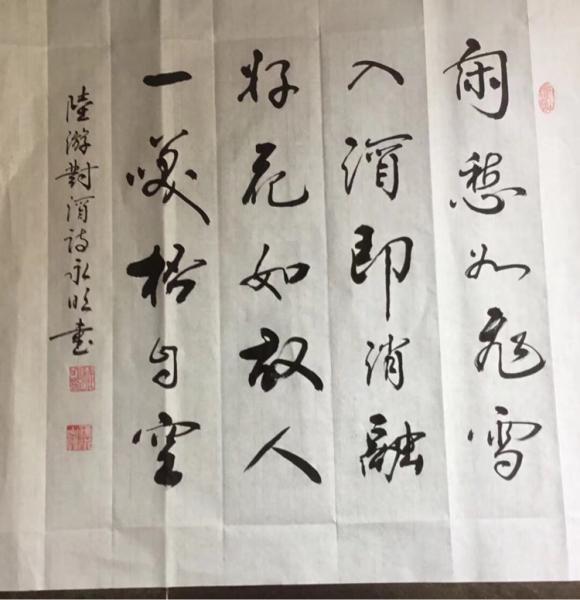 闲愁如飞雪
入酒即消融
好花如故人
一笑杯自空
陸游對酒诗永明書